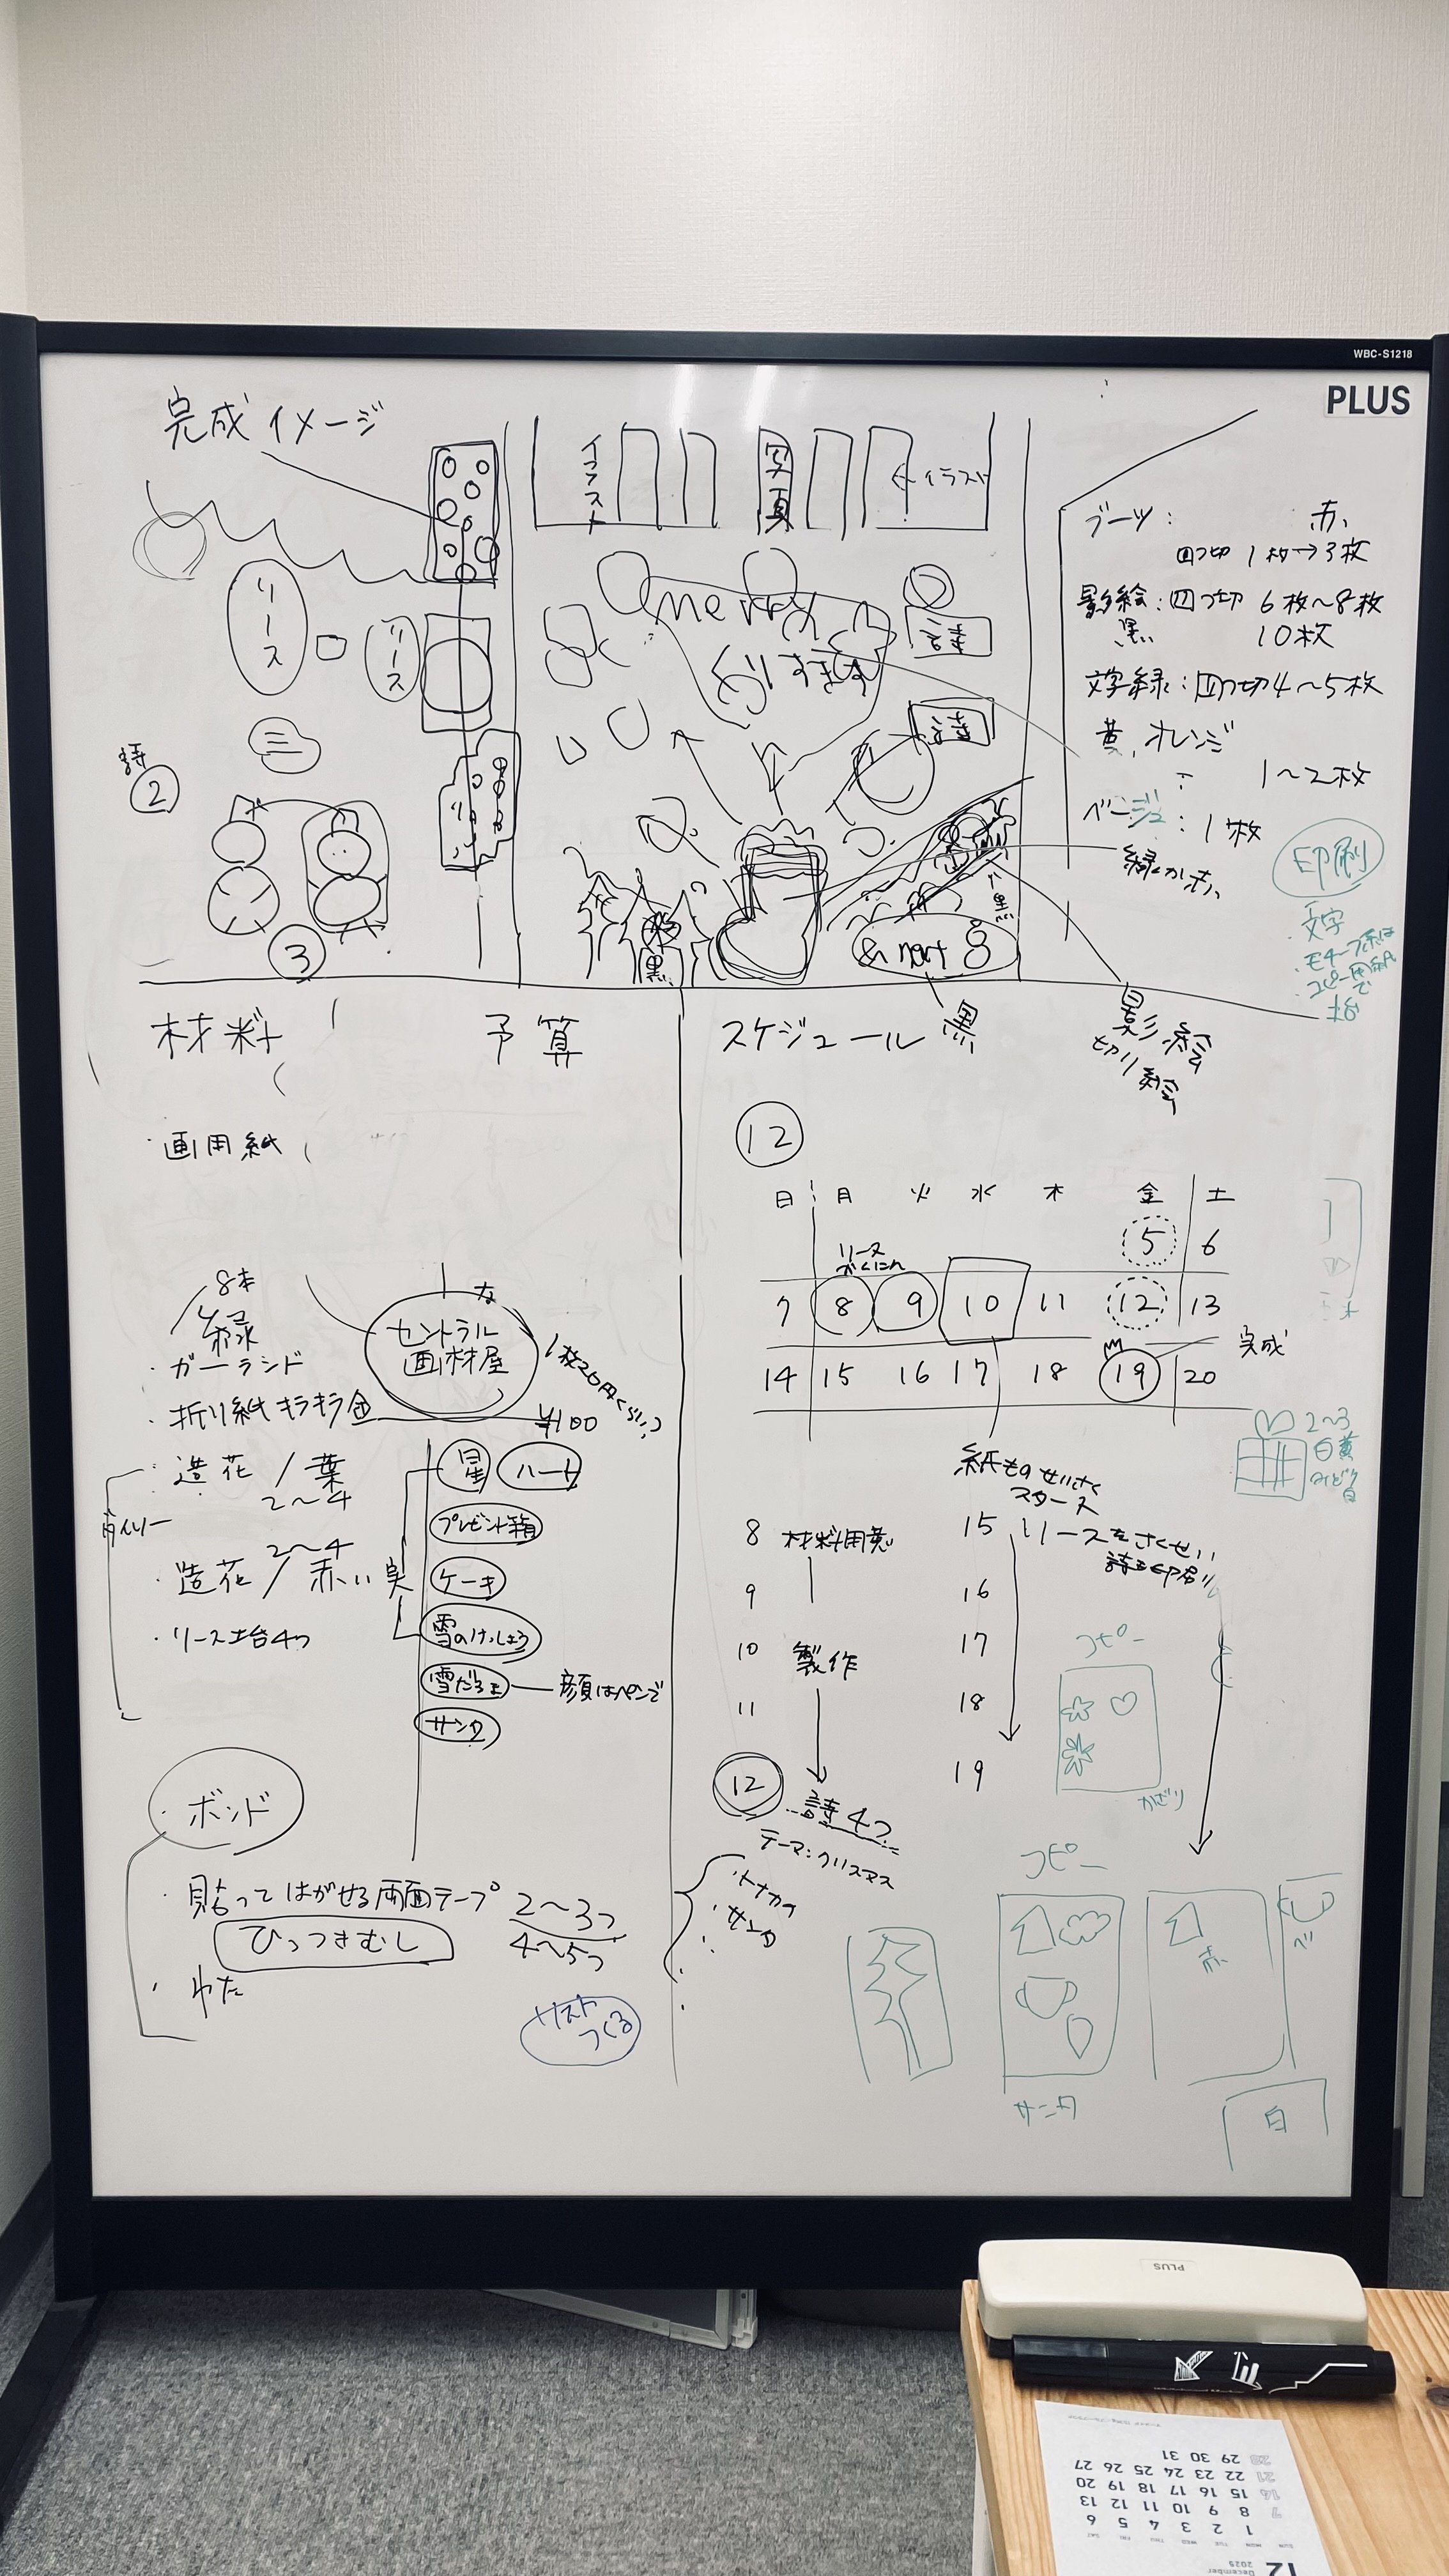 WBC-S1218
PLUS
完成イメージ
イラスト
写真
イラスト
リース
リース
詩
②
③
merry
くりすます
詩
詩
黒
黒
& nart 8
ブーツ: 赤
四つ切 1枚→3枚
影絵:四つ切 6枚~8枚
黒 10枚
文字緑:四つ切4~5枚
黄,オレンジ
: 1~2枚
ベージュ:1枚
緑か赤
印刷
・文字
・モチーフ系は
コピー用紙
で
材料
予算
スケジュール
黒
影絵
切り絵
・画用紙
8本
緑
・ガーランド
・折り紙キラキラ金
¥100
セントラル
画材屋
・造花/葉
2~4
2~4
・造花/赤い実
・リース土台4つ
星
ハート
プレゼント箱
ケーキ
雪のけっしょう
雪だるま
顔はペンで
サンタ
・ボンド
・貼ってはがせる両面テープ
2~3つ
4~5つ
ひっつきむし
・わた
リスト
つくる
12
日 月 火 水 木 金 土
5 6
リース
かくにん
7 8 9 10 11 12 13
完成
14 15 16 17 18 19 20
2~3
白黄
みどり
白
紙ものせいさく
スタート
8 材料用意
9
10 製作
11
12
詩4つ
テーマ:クリスマス
・トナカイ
・サンタ
15 リースをさくせい
詩を印刷
16
17
18
19
コピー
かざり
コピー
サンタ
赤
ベ
白
PLUS
12
December
2025
SUN MON TUE WED THU FRI SAT
1 2 3 4 5 6
7 8 9 10 11 12 13
14 15 16 17 18 19 20
21 22 23 24 25 26 27
28 29 30 31